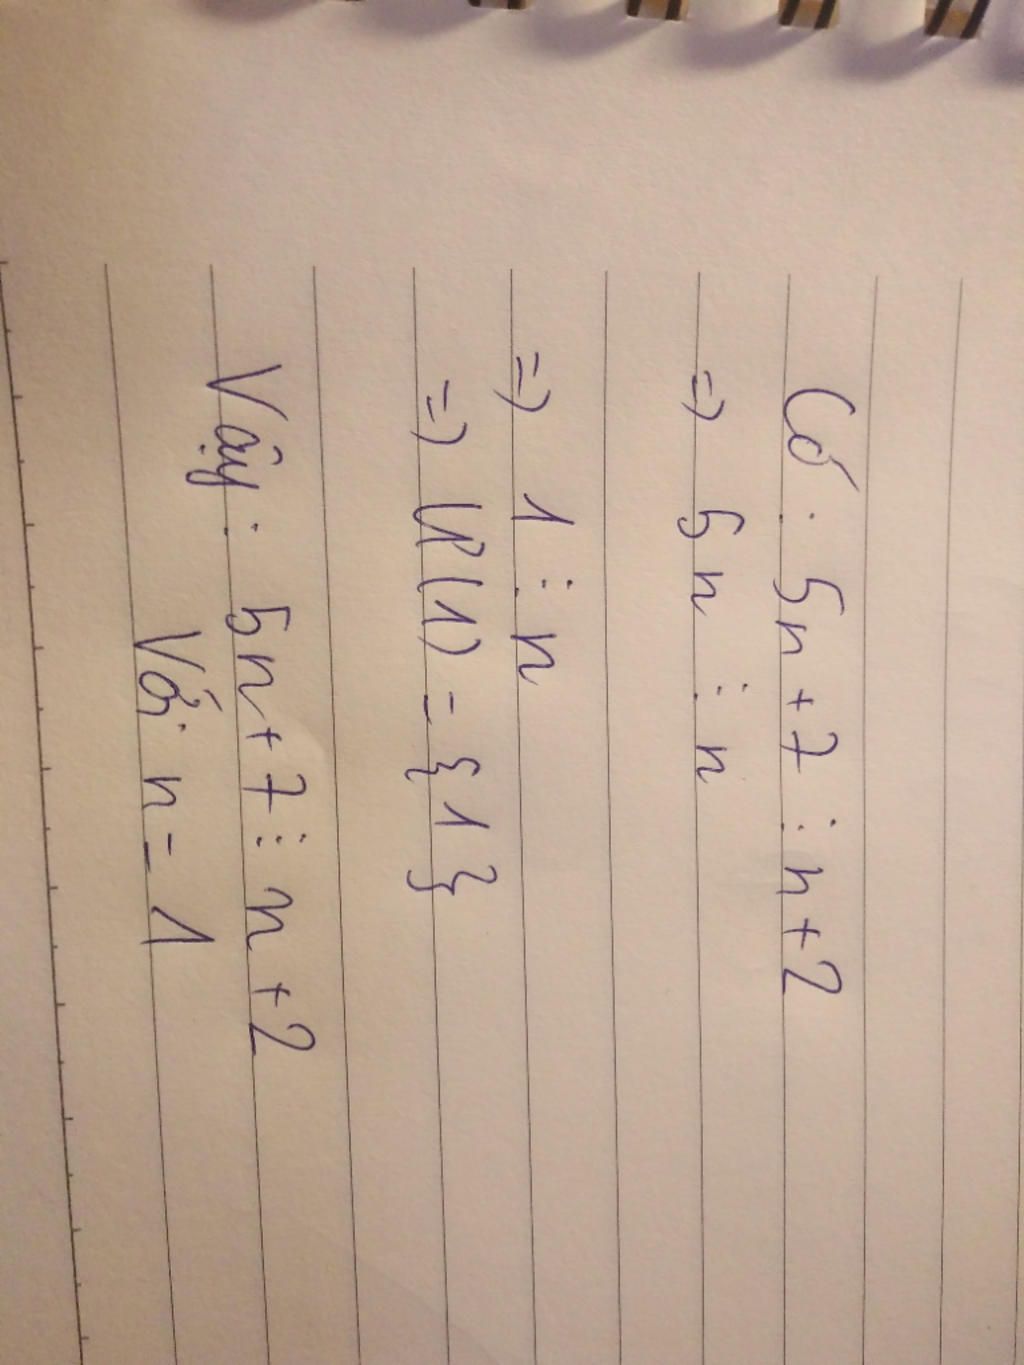 Có : 5n + 7 ⋮ n + 2
=> 5n ⋮ n
=> 1 ⋮ n
=> Ư(1) = {1}
Vậy : 5n + 7 ⋮ n + 2
Với n = 1